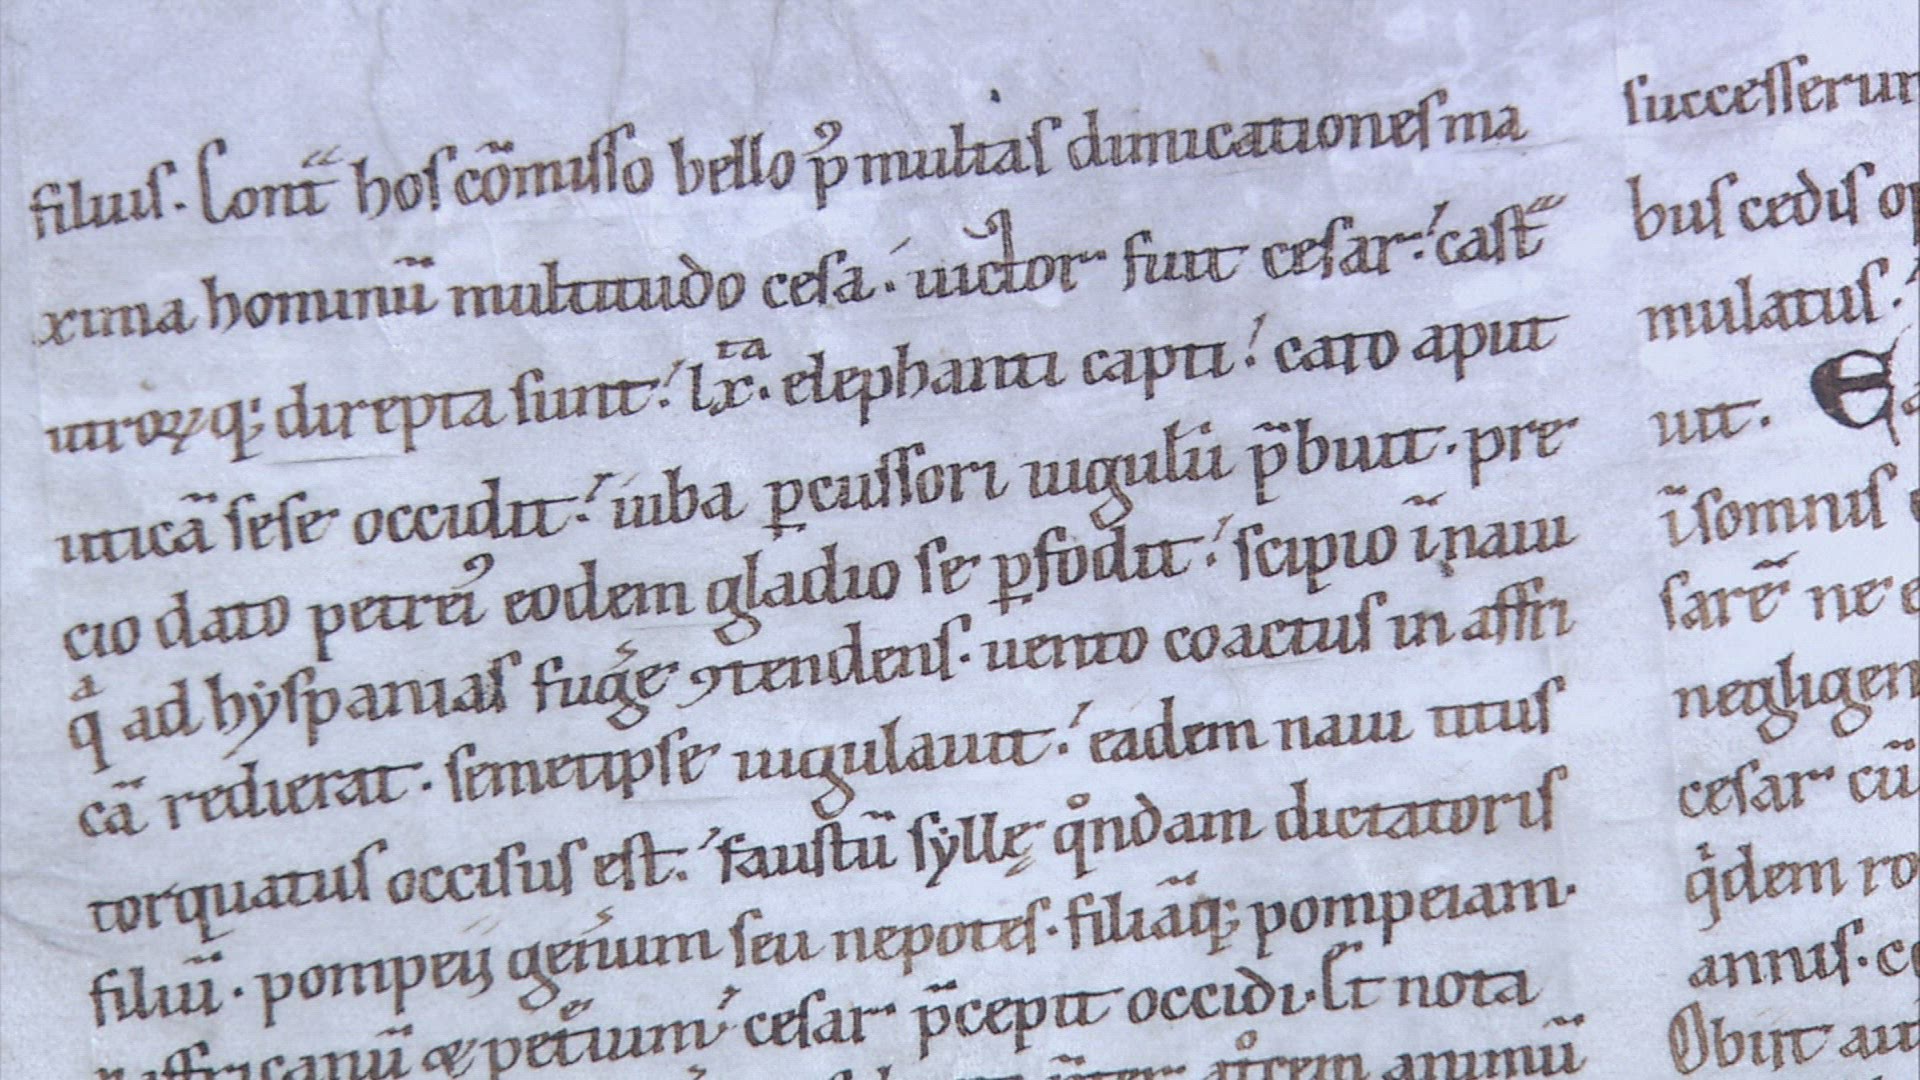 filius. Cont̄ hos cōmisso bello p᷒ multas dimicationes ma
xima hominū multitudo cesa. uictor fuit cesar. cast̄
utroꝝq; direpta sunt. lx.ᵗᵃ elephanti capti. cato aput
uticā sese occidit. iuba ꝑcussori iugulū p̄buit. pre
cio dato petrei᷒ eodem gladio se ꝑfodit. scipio ī naui
qᵃ ad hẏspanias fug̾e ꝯtendens. uento coactus in affri
cā redierat. semetipse iugulauit. eadem naui titus
torquatus occisus est. faustū sẏllę qͦndam dictatoris
filiū. pompeij gen̾um seu nepotes. filiāq; pompeiam.
affricanū & pet̄ium cesar p̄cepit occidi. Cͭ nota
animū
successerun
bus cedis op
mulatus.
uit. E
īsomnis
sarē ne
negligen
cesar cū
qͥdem ro
annis. co
Obiit aut